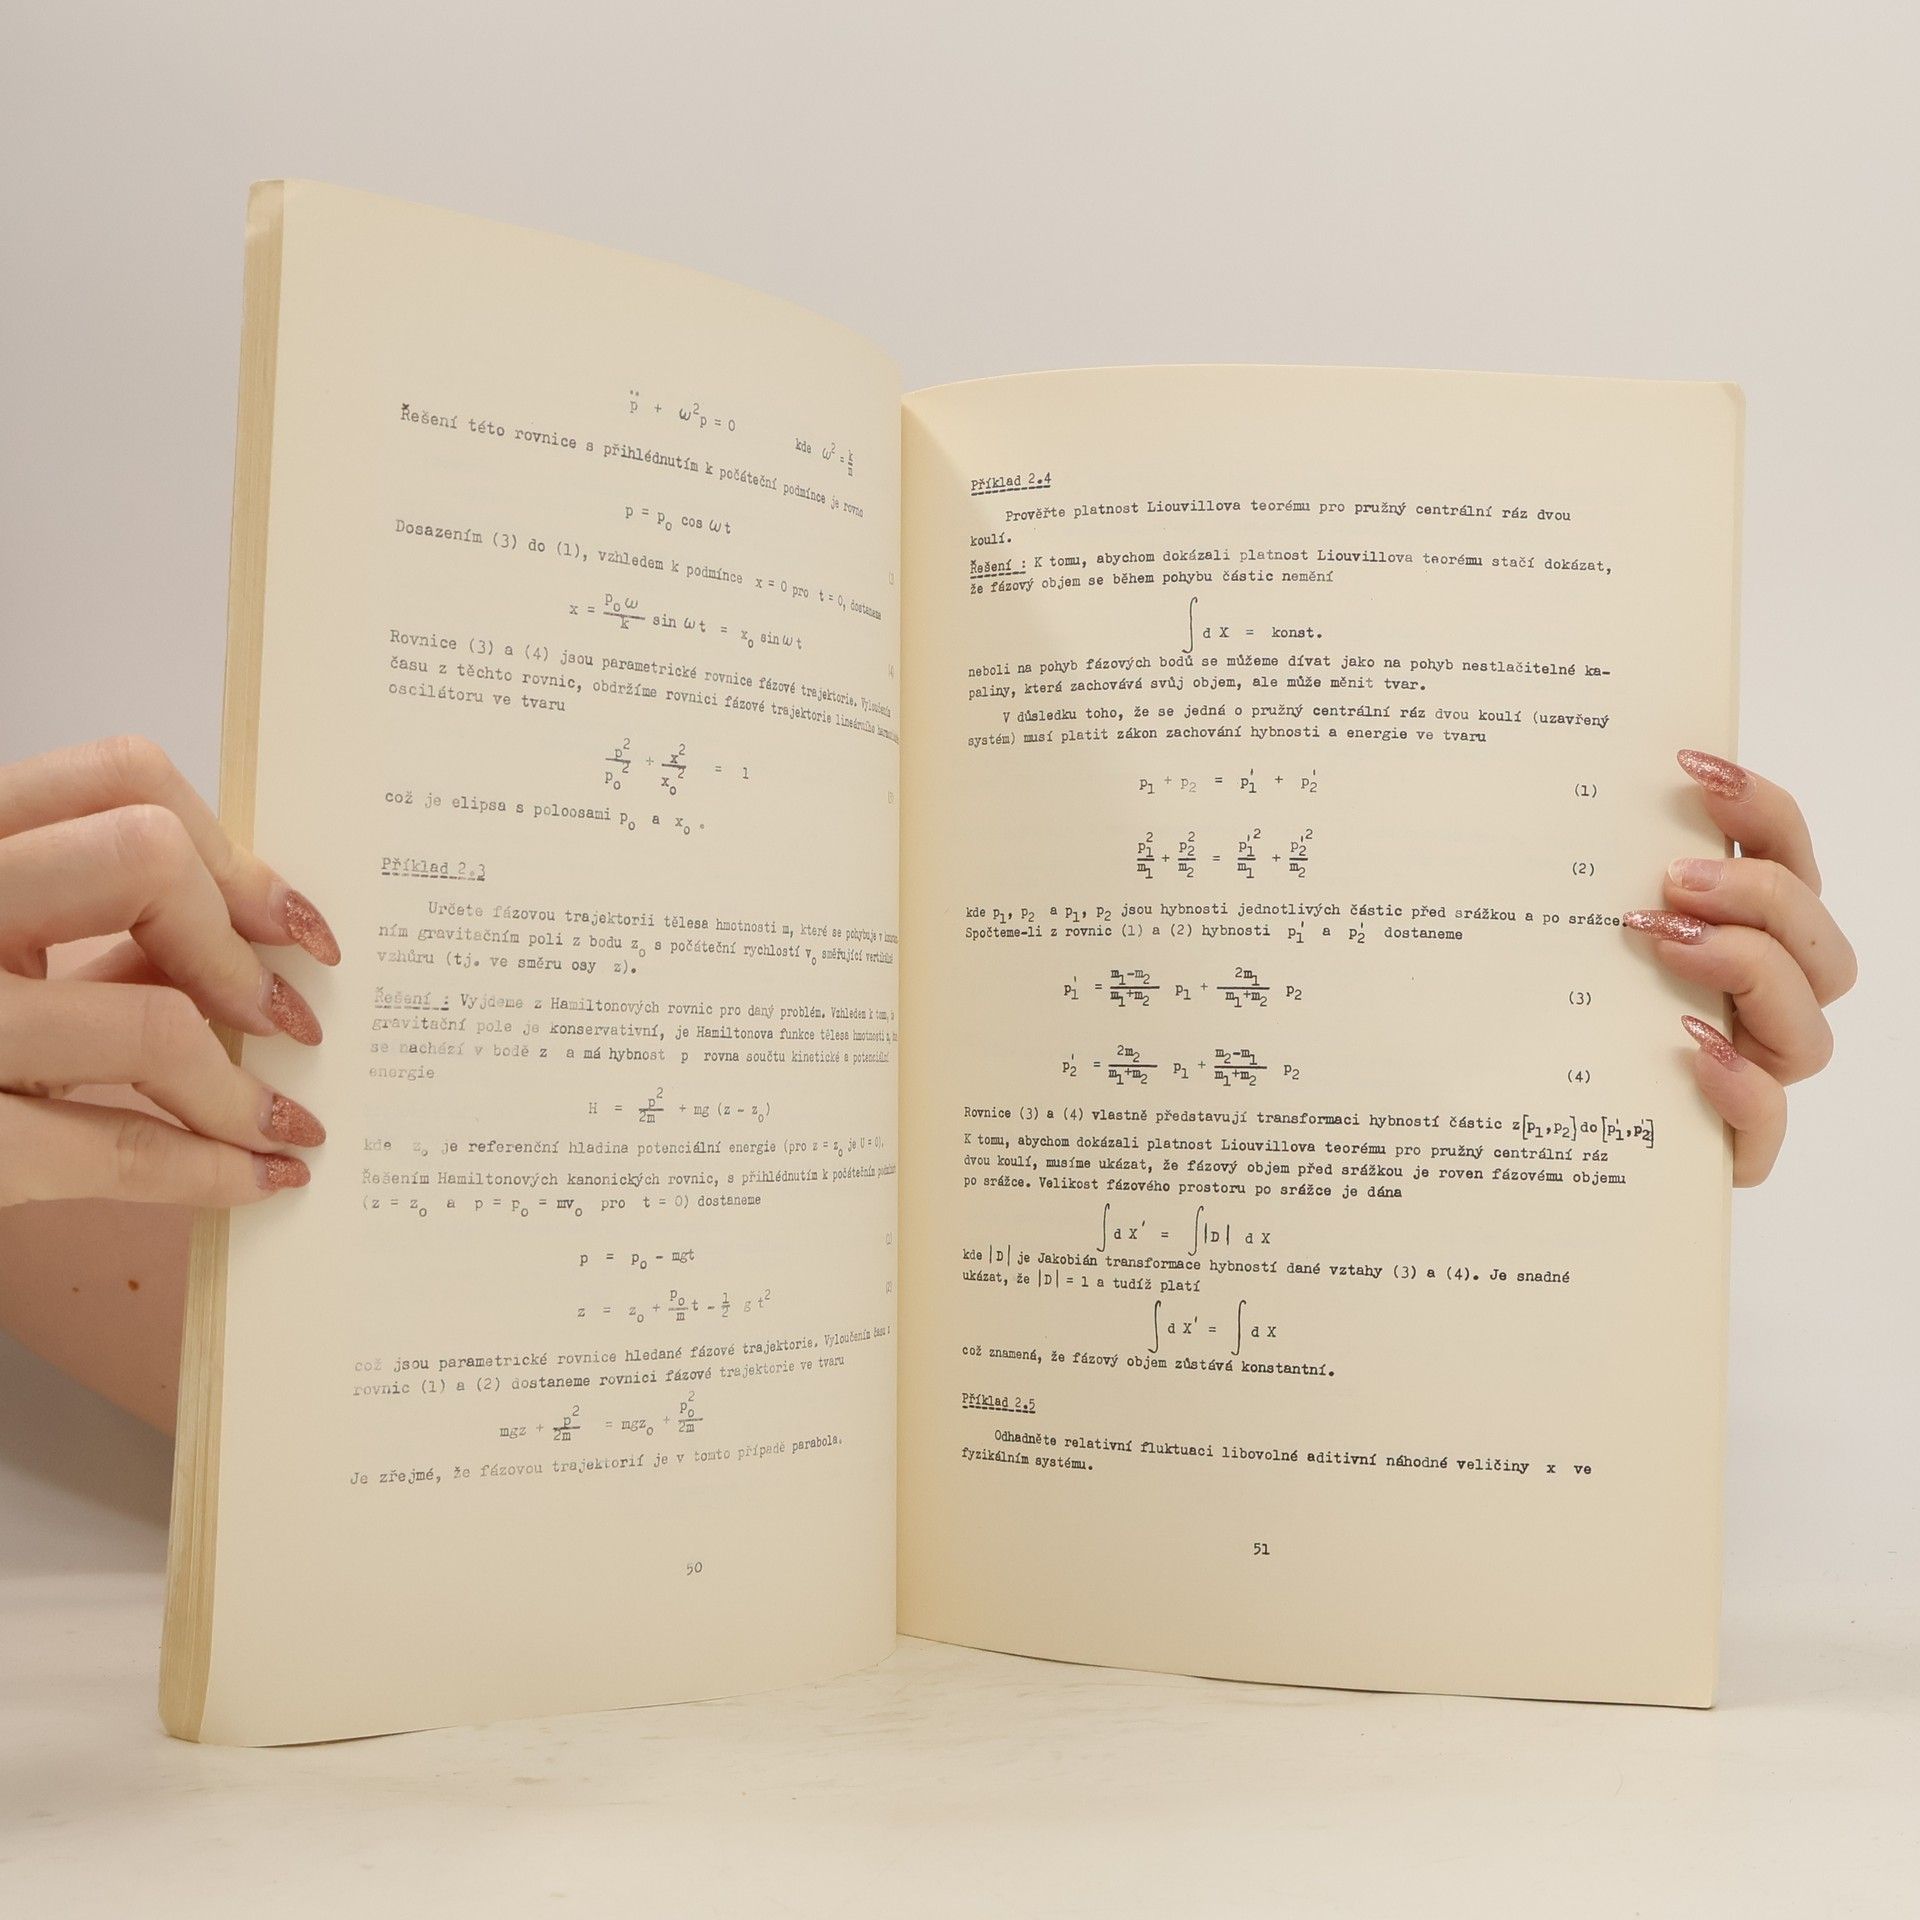 p̈ + ω²p = 0 kde ω² = k/m
Řešení této rovnice s přihlédnutím k počáteční podmínce je rovno
p = p₀ cos ωt
Dosazením (3) do (1), vzhledem k podmínce x = 0 pro t = 0, dostaneme
x = p₀ω/k sin ωt = x₀ sin ωt
Rovnice (3) a (4) jsou parametrické rovnice fázové trajektorie. Vyloučením
času z těchto rovnic, obdržíme rovnici fázové trajektorie lineárního
oscilátoru ve tvaru
p²/p₀² + x²/x₀² = 1
což je elipsa s poloosami p₀ a x₀.
Příklad 2.3
Určete fázovou trajektorii tělesa hmotnosti m, které se pohybuje v
ním gravitačním poli z bodu z₀ s počáteční rychlostí v₀ směřující vertikálně
vzhůru (tj. ve směru osy z).
Řešení : Vyjdeme z Hamiltonových rovnic pro daný problém. Vzhledem k tomu,
gravitační pole je konservativní, je Hamiltonova funkce tělesa hmotnosti
se nachází v bodě z a má hybnost p rovna součtu kinetické a potenciální
energie
H = p²/2m + mg (z - z₀)
kde z₀ je referenční hladina potenciální energie (pro z = z₀ je U = 0).
Řešením Hamiltonových kanonických rovnic, s přihlédnutím k počátečním
(z = z₀ a p = p₀ = mv₀ pro t = 0) dostaneme
p = p₀ - mgt (1)
z = z₀ + p₀/m t - 1/2 g t² (2)
což jsou parametrické rovnice hledané fázové trajektorie. Vyloučením času z
rovnic (1) a (2) dostaneme rovnici fázové trajektorie ve tvaru
mgz + p²/2m = mgz₀ + p₀²/2m
Je zřejmé, že fázovou trajektorií je v tomto případě parabola.
50
Příklad 2.4
Prověřte platnost Liouvillova teorému pro pružný centrální ráz dvou
koulí.
Řešení : K tomu, abychom dokázali platnost Liouvillova teorému stačí dokázat,
že fázový objem se během pohybu částic nemění
∫ d X = konst.
neboli na pohyb fázových bodů se můžeme dívat jako na pohyb nestlačitelné ka-
paliny, která zachovává svůj objem, ale může měnit tvar.
V důsledku toho, že se jedná o pružný centrální ráz dvou koulí (uzavřený
systém) musí platit zákon zachování hybnosti a energie ve tvaru
p₁ + p₂ = p₁' + p₂' (1)
p₁²/m₁ + p₂²/m₂ = p₁'²/m₁ + p₂'²/m₂ (2)
kde p₁, p₂ a p₁, p₂ jsou hybnosti jednotlivých částic před srážkou a po srážce.
Spočteme-li z rovnic (1) a (2) hybnosti p₁' a p₂' dostaneme
p₁' = m₁-m₂/m₁+m₂ p₁ + 2m₁/m₁+m₂ p₂ (3)
p₂' = 2m₂/m₁+m₂ p₁ + m₂-m₁/m₁+m₂ p₂ (4)
Rovnice (3) a (4) vlastně představují transformaci hybností částic z [p₁,p₂] do [p₁',p₂']
K tomu, abychom dokázali platnost Liouvillova teorému pro pružný centrální ráz
dvou koulí, musíme ukázat, že fázový objem před srážkou je roven fázovému objemu
po srážce. Velikost fázového prostoru po srážce je dána
∫ d X' = ∫ |D| d X
kde |D| je Jakobián transformace hybností dané vztahy (3) a (4). Je snadné
ukázat, že |D| = 1 a tudíž platí
∫ d X' = ∫ d X
což znamená, že fázový objem zůstává konstantní.
Příklad 2.5
Odhadněte relativní fluktuaci libovolné aditivní náhodné veličiny x ve
fyzikálním systému.
51